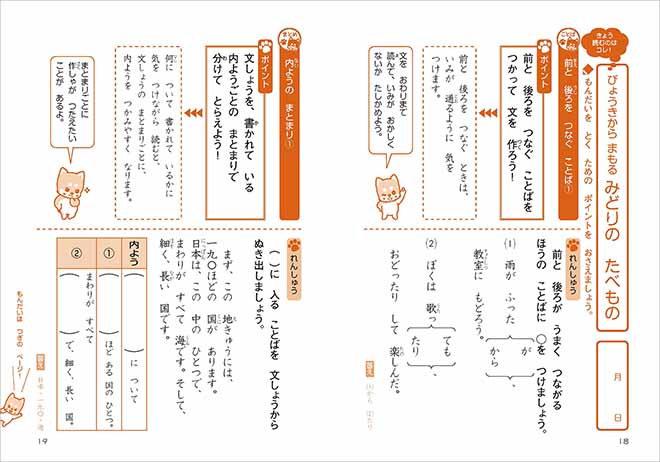 きょう
読むのは
コレ！
びょうきから まもる みどりの たべもの
もんだいを とく ための ポイントを おさえましょう。
月 日
ことば
前と 後ろを つなぐ ことば①
ポイント
前と 後ろを つなぐ ことばを
つかって 文を 作ろう！
前と 後ろを つなぐ ときは、
いみが 通るように 気を
つけます。
文を おわりまで
読んで、いみが おかしく
ないか たしかめよう。
れんしゅう
前と 後ろが うまく つながる
ほうの ことばに ○を つけましょう。
(1) 雨が ふった
が
から
、
教室に もどろう。
(2) ぼくは 歌っ
ても
たり
、
おどったり して 楽しんだ。
答え (1)から (2)たり
18
まとめ
内ようの まとまり①
ポイント
文しょうを、書かれて いる
内ようごとの まとまりで
分けて とらえよう！
何に ついて 書かれて いるかに
気を つけながら 読むと、
文しょうの まとまりごとに、
内ようを つかみやすく なります。
まとまりごとに
作しゃが つたえたい
ことが あるよ。
れんしゅう
( )に 入る ことばを 文しょうから
ぬき出しましょう。
まず、この 地きゅうには、
一九〇ほどの 国が あります。
日本は、この 中の ひとつで、
まわりが すべて 海です。そして、
細く、長い 国です。
内よう
( )に ついて
①
( )ほど ある 国の ひとつ。
②
まわりが すべて
( )で、細く、長い 国。
答え 日本・一九〇・海
もんだいは つぎの ページ！
19